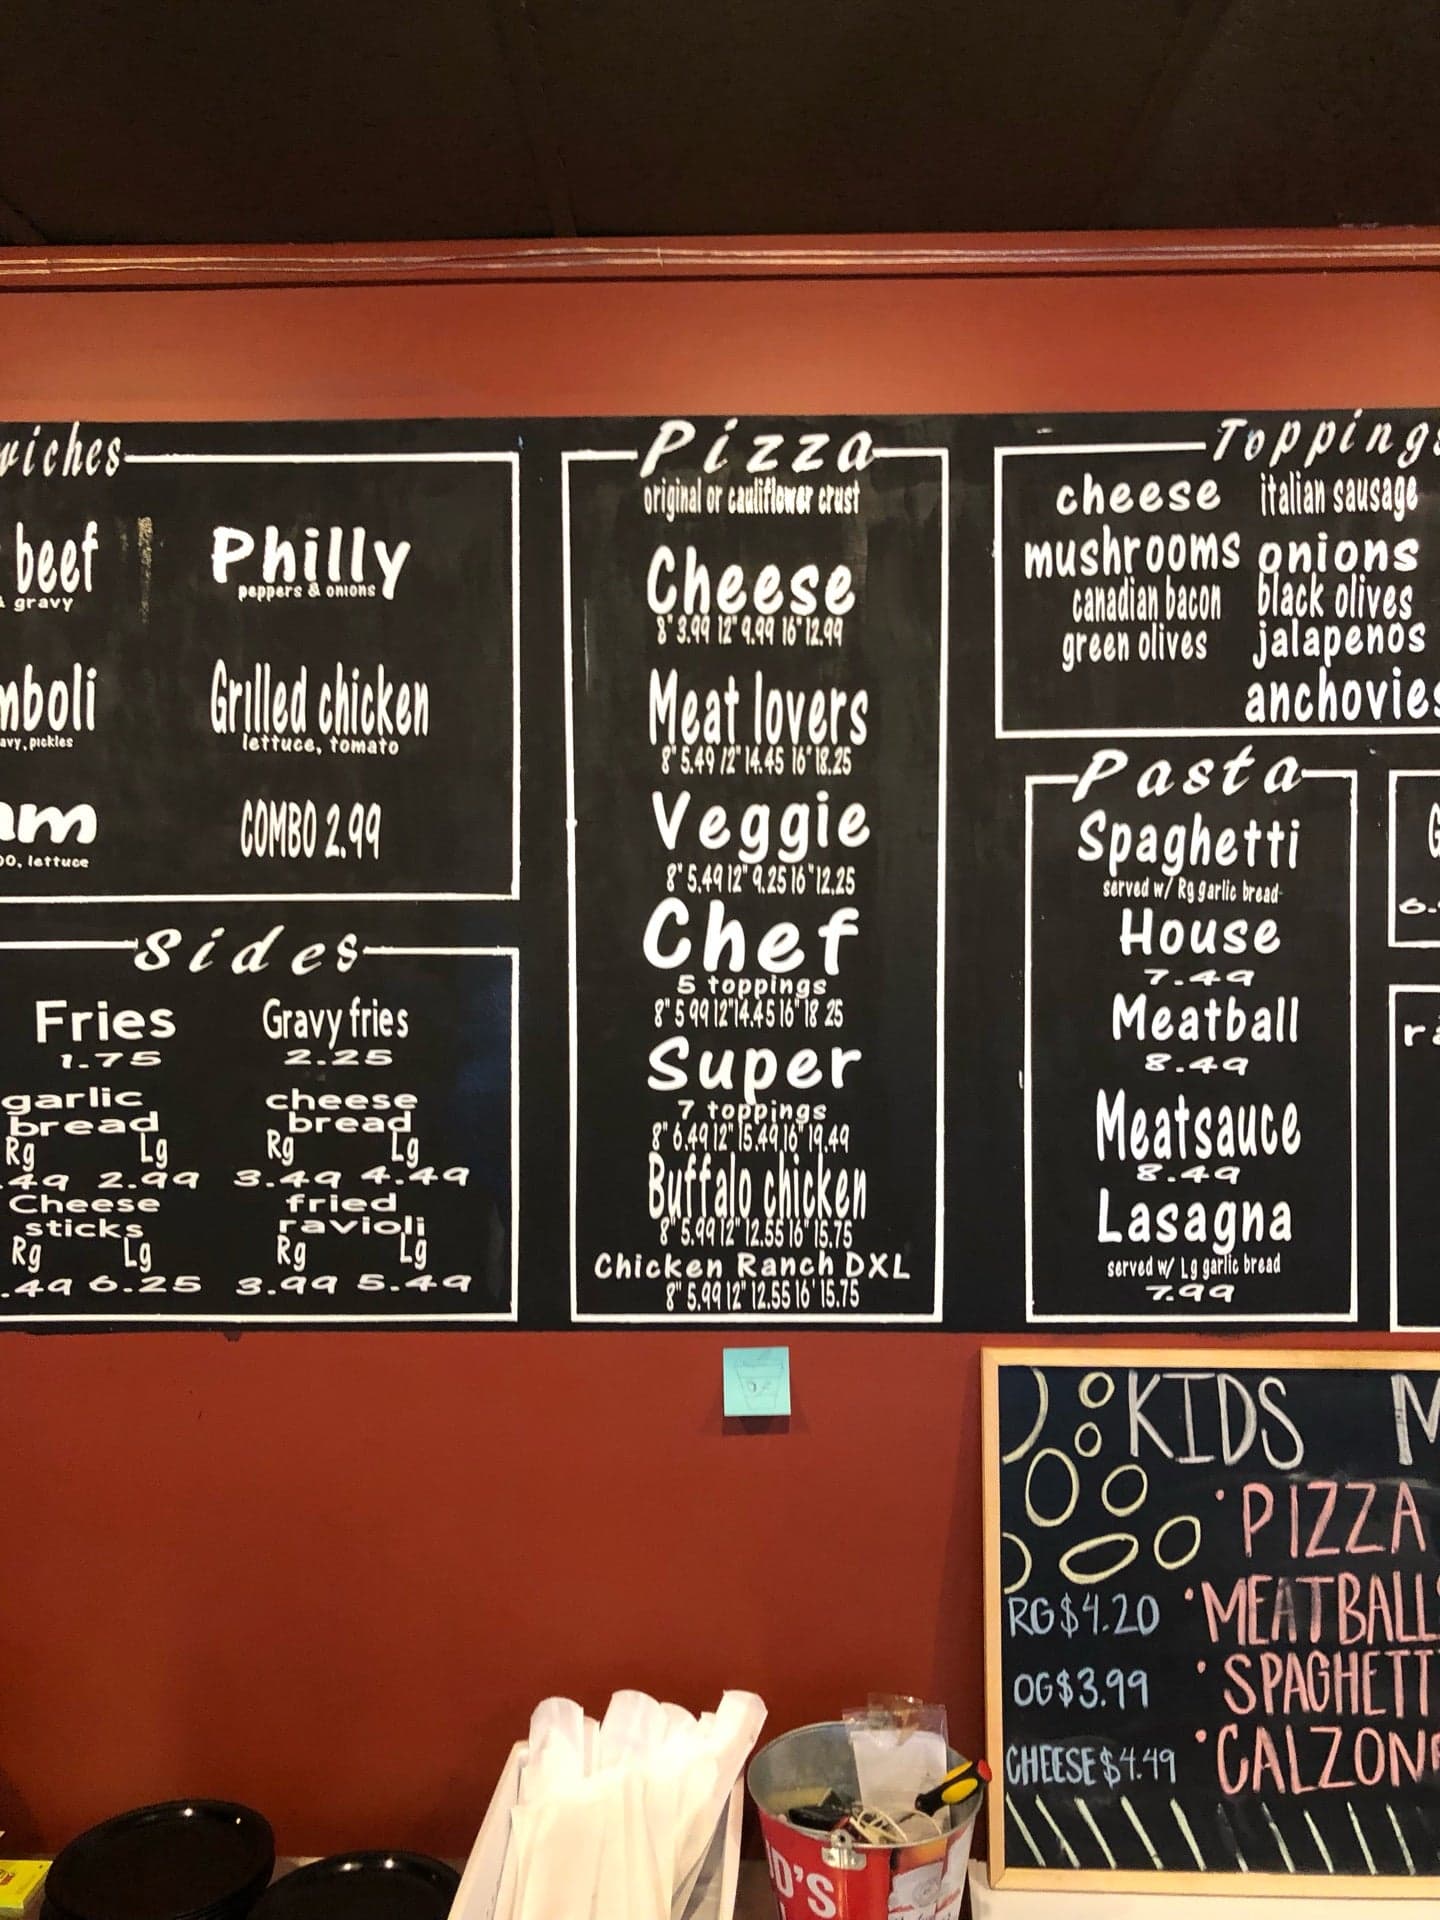 beef
gravy
Philly
peppers & onions
pickles
Grilled chicken
lettuce, tomato
lettuce
COMBO 2.99
Sides
Fries
1.75
Gravy fries
2.25
garlic
bread
Rg Lg
2.99
cheese
bread
Rg Lg
3.49 4.49
Cheese
sticks
Rg Lg
6.25
fried
ravioli
Rg Lg
3.99 5.49
Pizza
original or cauliflower crust
Cheese
8" 3.99 12" 9.99 16" 12.99
Meat lovers
8" 5.49 12" 14.45 16" 18.25
Veggie
8" 5.49 12" 9.25 16" 12.25
Chef
5 toppings
8" 5 99 12" 14.45 16" 18 25
Super
7 toppings
8" 6.49 12" 15.49 16" 19.49
Buffalo chicken
8" 5.99 12" 12.55 16" 15.75
Chicken Ranch DXL
8" 5.99 12" 12.55 16' 15.75
Toppings
cheese italian sausage
mushrooms onions
canadian bacon black olives
green olives jalapenos
anchovies
Pasta
Spaghetti
served w/ Rg garlic bread
House
7.49
Meatball
8.49
Meatsauce
8.49
Lasagna
served w/ Lg garlic bread
7.99
KIDS
• PIZZA
RG $4.20 • MEATBALL
OG $3.99 • SPAGHETTI
CHEESE $4.49 • CALZONE